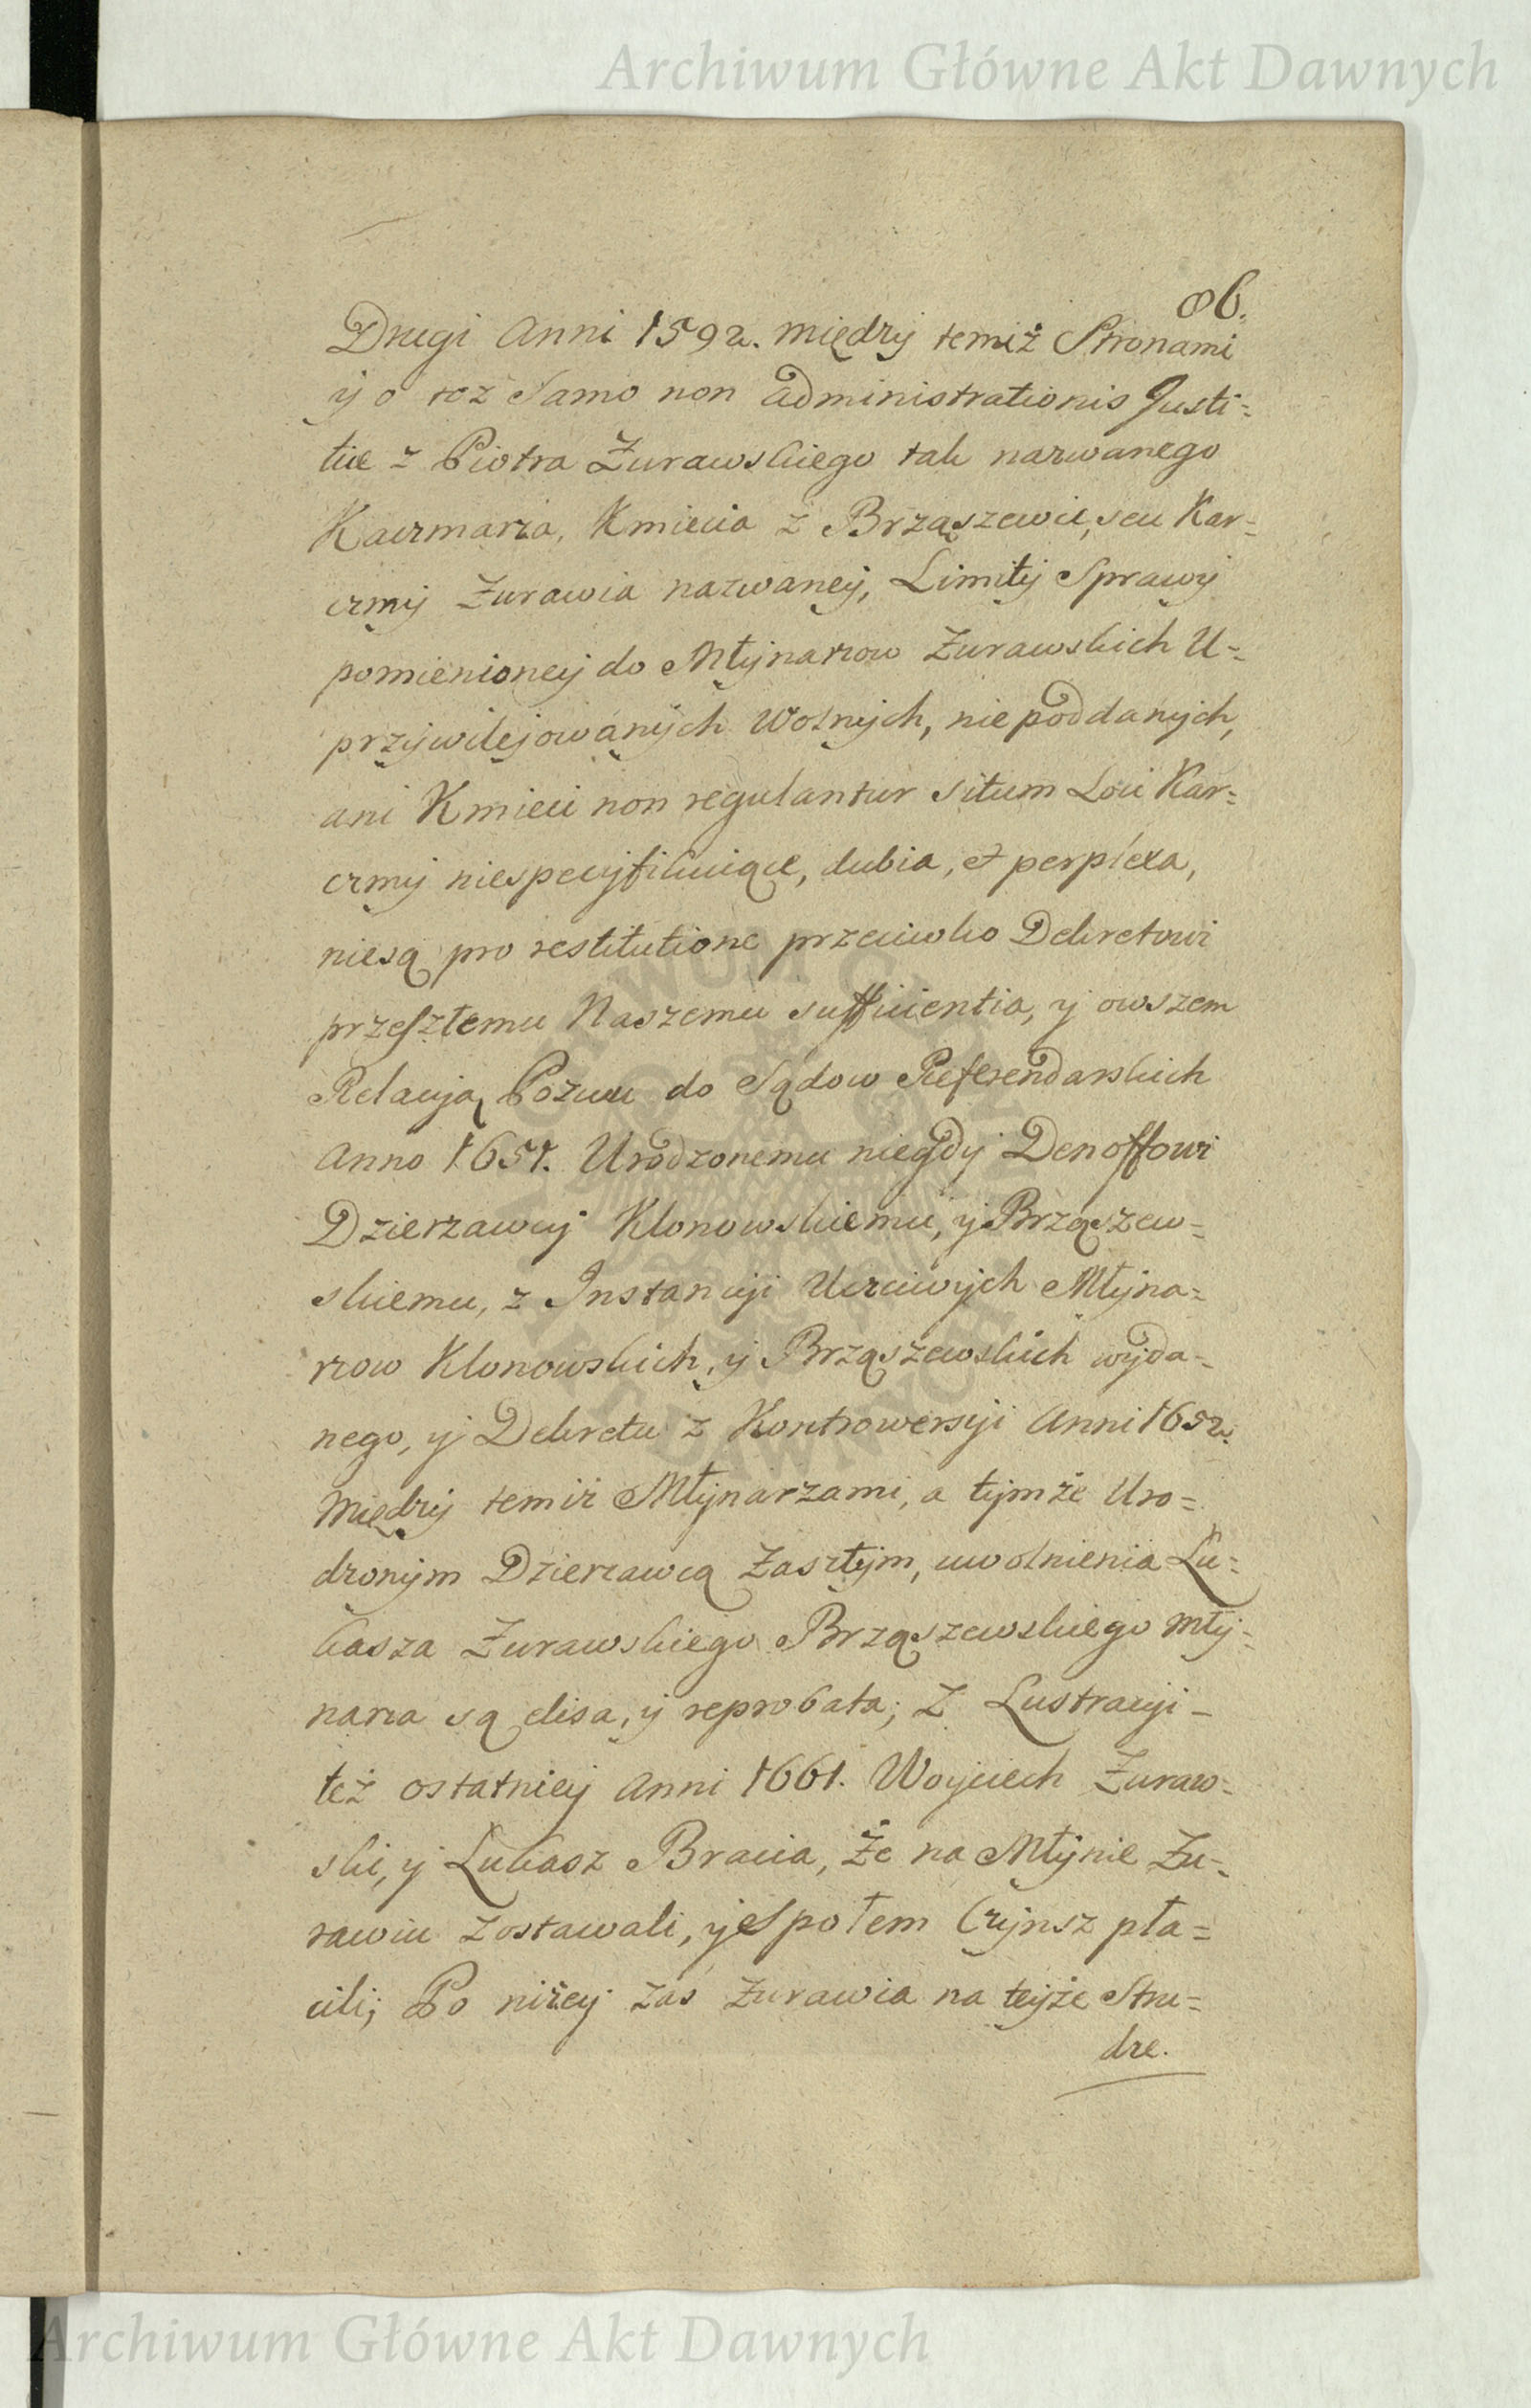 Archiwum Główne Akt Dawnych
86.
Drugi Anni 1592. między temiż Stronami
ÿ o toż Samo non administrationis Justi=
tiæ z Piotra Żurawskiego tak nazwanego
Kaczmarza, Kmiecia z Brząszewic, seu Kar=
czmÿ Żurawia nazwaneÿ, Limitÿ Sprawÿ
pomienioneÿ do Młÿnarzow Żurawskich U=
przÿwilejowanÿch Wolnÿch, nie poddanÿch,
ani Kmieci non regulantur situm Loci Kar=
czmÿ niespecÿfikuiące, dubia, et perplexa,
niesą pro restitutione przeciwko Dekretowi
przeszłemu Naszemu sufficientia, ÿ owszem
Relacÿą Pozwu do Sądow Referendarskich
Anno 1651. Urodzonemu niegdÿ Denoffowi
Dzierzawcÿ Klonowskiemu, ÿ Brząszew=
skiemu, z Instancÿi Uczciwÿch Młÿna=
rzow Klonowskich, ÿ Brząszewskich wÿda=
nego, ÿ Dekretu z Kontrowersÿi Anni 1652.
Międzÿ temiż Młÿnarzami, a tÿmże Uro=
dzonÿm Dzierzawcą Zaszłÿm, uwolnienia Łu=
kasza Żurawskiego Brząszewskiego Młÿ=
narza są elisa, ÿ reprobata; Z Lustracÿi
też ostatnieÿ Anni 1661. Woÿciech Żuraw=
ski, ÿ Łukasz Bracia, Że na Młÿnie Żu=
rawiu zostawali, ÿ Społem Czÿnsz pła=
cili; Po niżeÿ zaś Żurawia na teÿże Stru=
dze.
Archiwum Główne Akt Dawnych